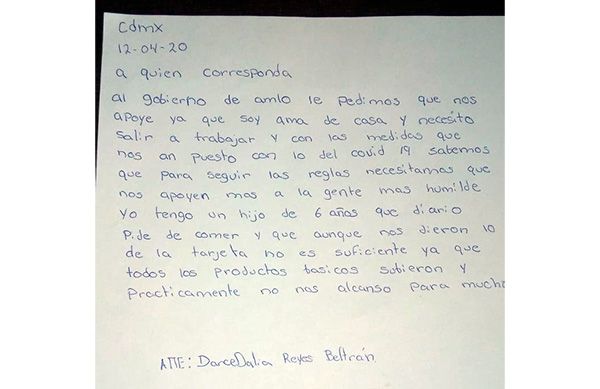 Cdmx
12-04-20
a quien corresponda
al gobierno de amlo le pedimos que nos
apoye ya que soy ama de casa y necesito
salir a trabajar y con las medidas que
nos an puesto con lo del covid 19 sabemos
que para seguir las reglas necesitamos que
nos apoyen mas a la gente mas humilde
yo tengo un hijo de 6 años que diario
pide de comer y que aunque nos dieron lo
de la tarjeta no es suficiente ya que
todos los productos basicos subieron y
practicamente no nos alcanso para mucho
ATTE: DarceDalia Reyes Beltrán